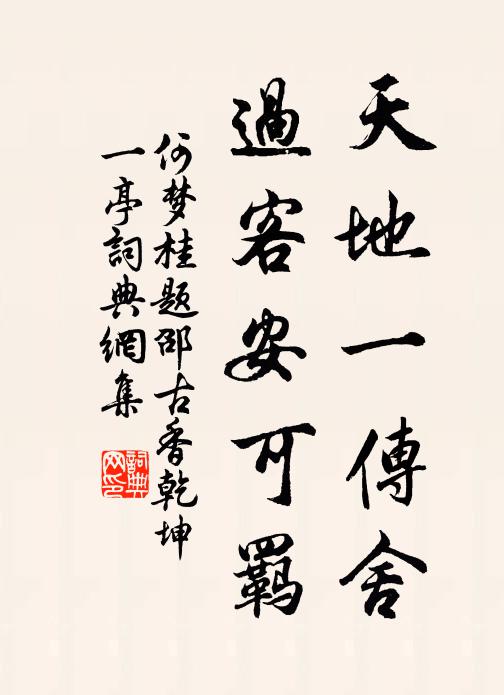 天地一傳舍
過客安可羈
何梦桂题邵古香乾坤
一亭詞典網集
詞典
网印